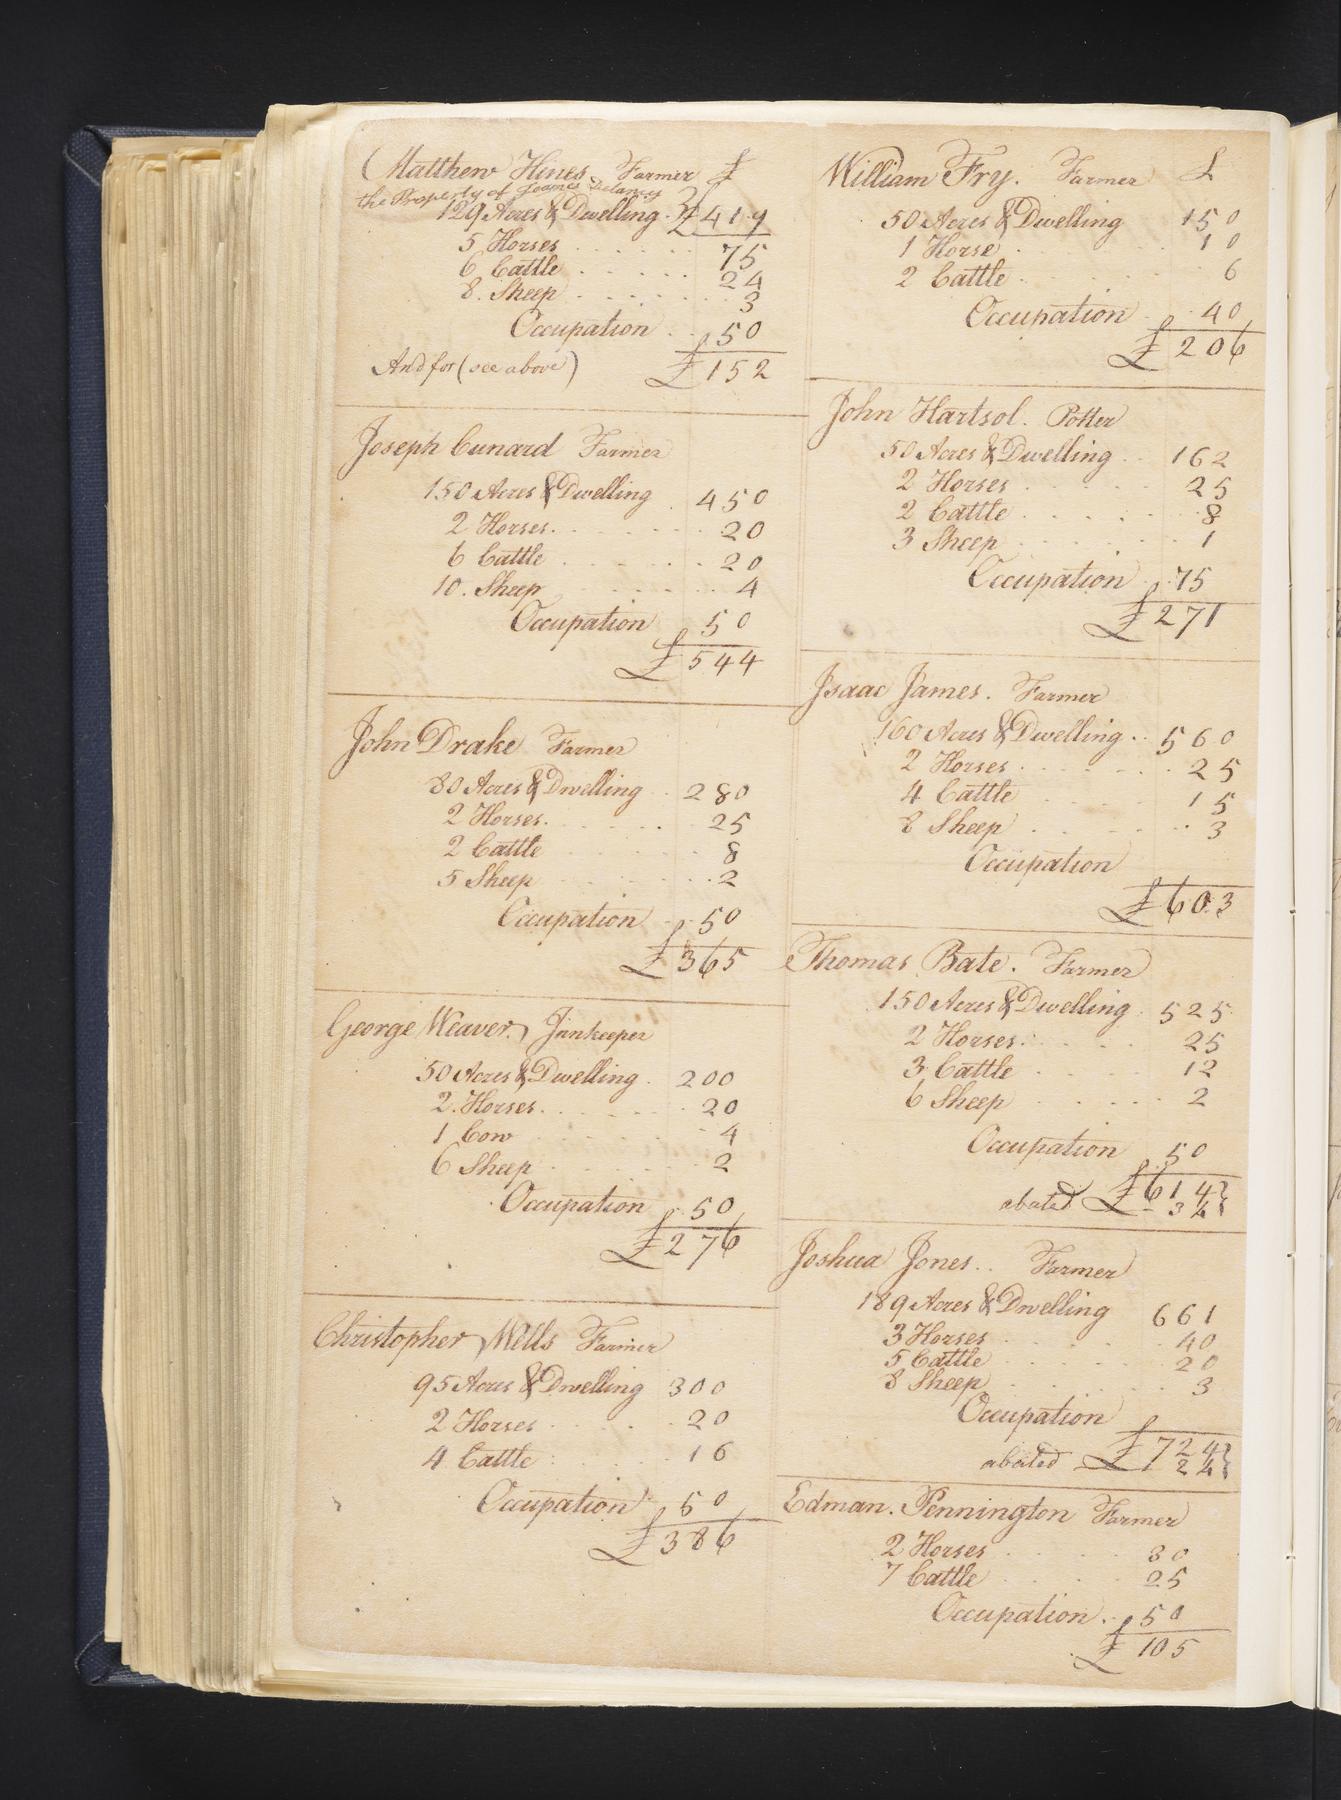 Matthew Hines Farmer £
the Property of Joames Delancy
129 Acres & Dwelling £ 419
5 Horses 75
6 Cattle 24
8. Sheep 3
Occupation 50
And for (see above) £ 152
Joseph Cunard Farmer
150 Acres & Dwelling 450
2 Horses 20
6 Cattle 20
10. Sheep 4
Occupation 50
£ 544
John Drake Farmer
80 Acres & Dwelling 280
2 Horses 25
2 Cattle 8
5 Sheep 2
Occupation 50
£ 365
George Weaver, Innkeeper
50 Acres & Dwelling 200
2. Horses 20
1 Cow 4
6 Sheep 2
Occupation 50
£ 276
Christopher Wells Farmer
95 Acres & Dwelling 300
2 Horses 20
4 Cattle 16
Occupation 50
£ 386
William Fry. Farmer £
50 Acres & Dwelling 150
1 Horse 10
2 Cattle 6
Occupation 40
£ 206
John Hartsol. Potter
50 Acres & Dwelling 162
2 Horses 25
2 Cattle 8
3 Sheep 1
Occupation 75
£ 271
Isaac James. Farmer
160 Acres & Dwelling 560
2 Horses 25
4 Cattle 15
8 Sheep 3
Occupation
£ 603
Thomas Bate. Farmer
150 Acres & Dwelling 525
2 Horses 25
3 Cattle 12
6 Sheep 2
Occupation 50
£ 614
abated 34
Joshua Jones. Farmer
189 Acres & Dwelling 661
3 Horses 40
5 Cattle 20
8 Sheep 3
Occupation
£ 724
abated 24
Edman. Pennington Farmer
2 Horses 30
7 Cattle 25
Occupation 50
£ 105